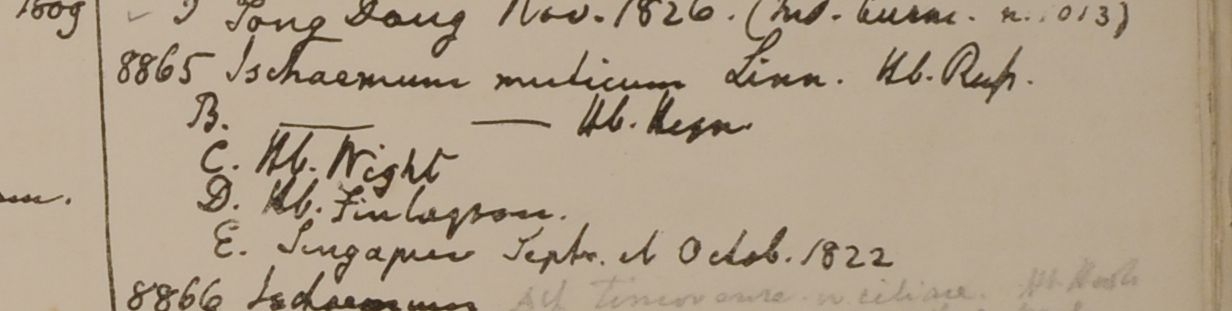 Tong Dong Nov. 1826.
8865 Ischaemum muticum Linn. Hb. Rup.
B. — — Hb. Heyn.
C. Hb. Wight
D. Hb. Finlayson.
E. Singapur Septr. et Octob. 1822
8866 Ischaemum